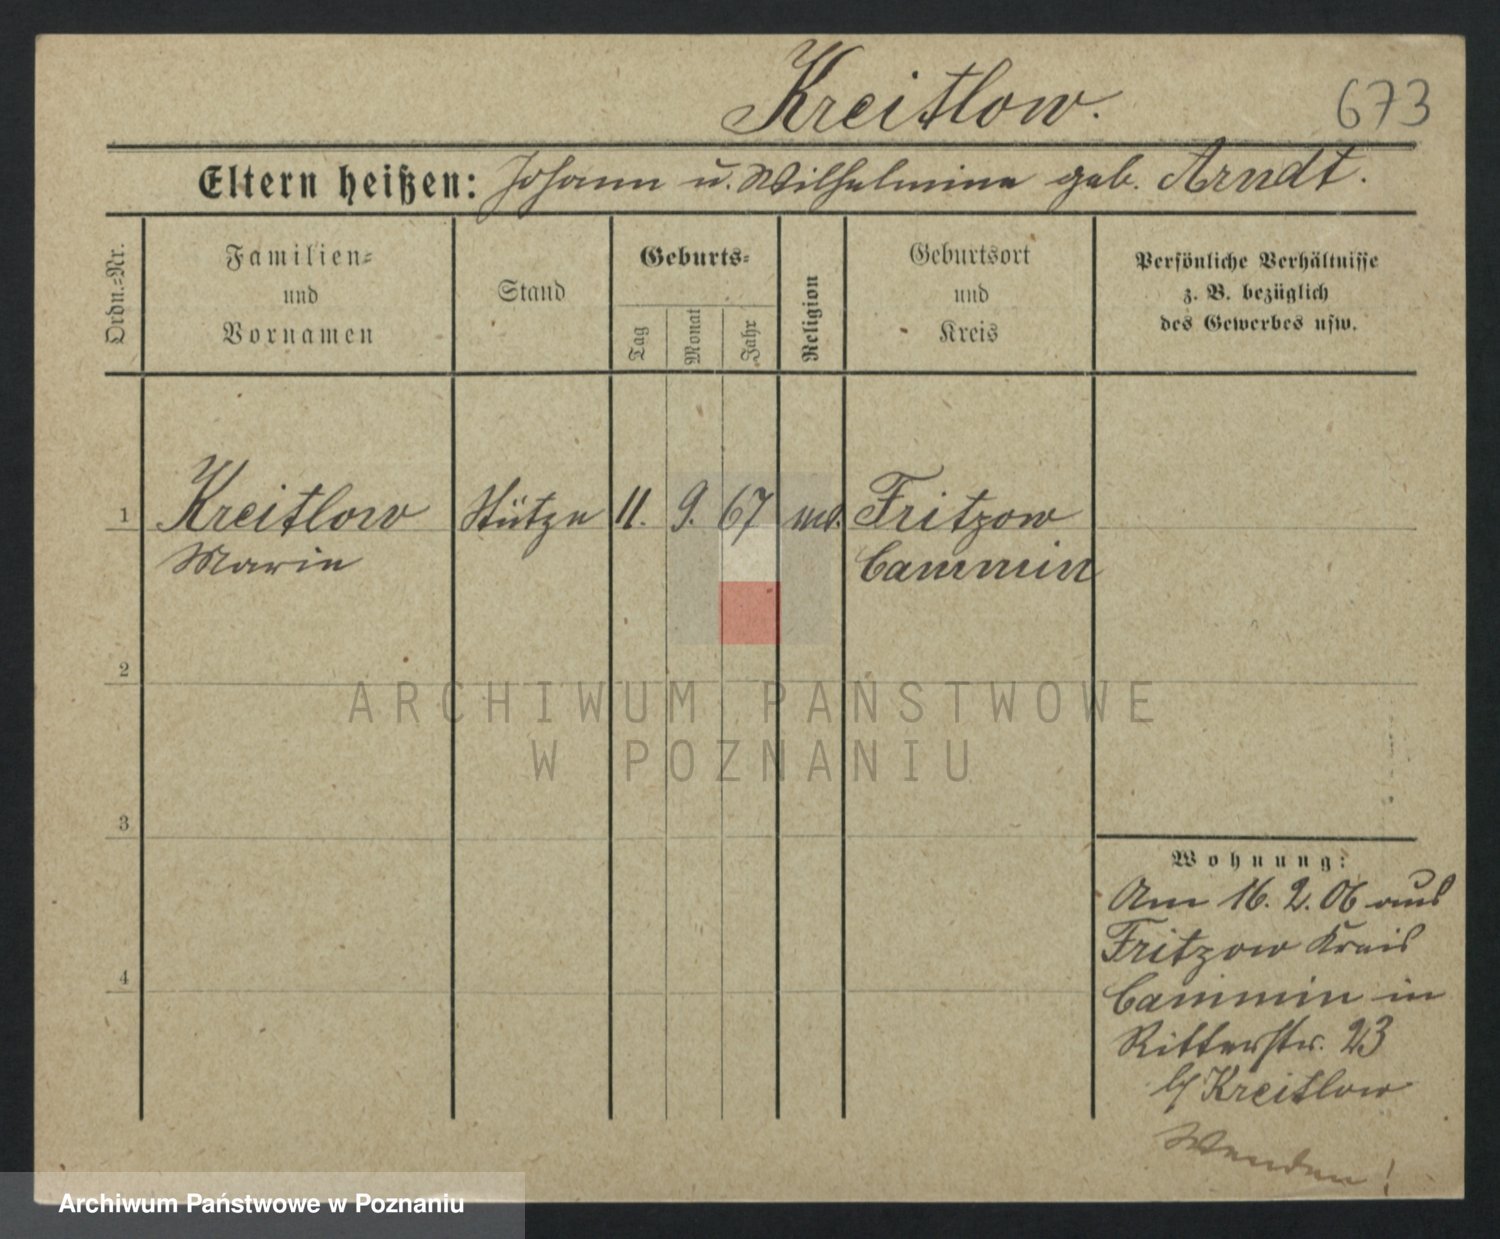 Kreitlow.
673
Eltern heißen: Johann u. Wilhelmine geb. Arndt.
Ordn.-Nr.
Familien- und Vornamen
Stand
Geburts-
Tag
Monat
Jahr
Religion
Geburtsort und Kreis
Persönliche Verhältnisse z. B. bezüglich des Gewerbes usw.
1 Kreitlow Stütze 11. 9. 67 Fritzow
Marie Cammin
2
3
4
Wohnung:
Am 16. 2. 06 aus
Fritzow Kreis
Cammin in
Ritterstr. 23
b/ Kreitlow
Wenden!
ARCHIWUM PAŃSTWOWE
W POZNANIU
Archiwum Państwowe w Poznaniu